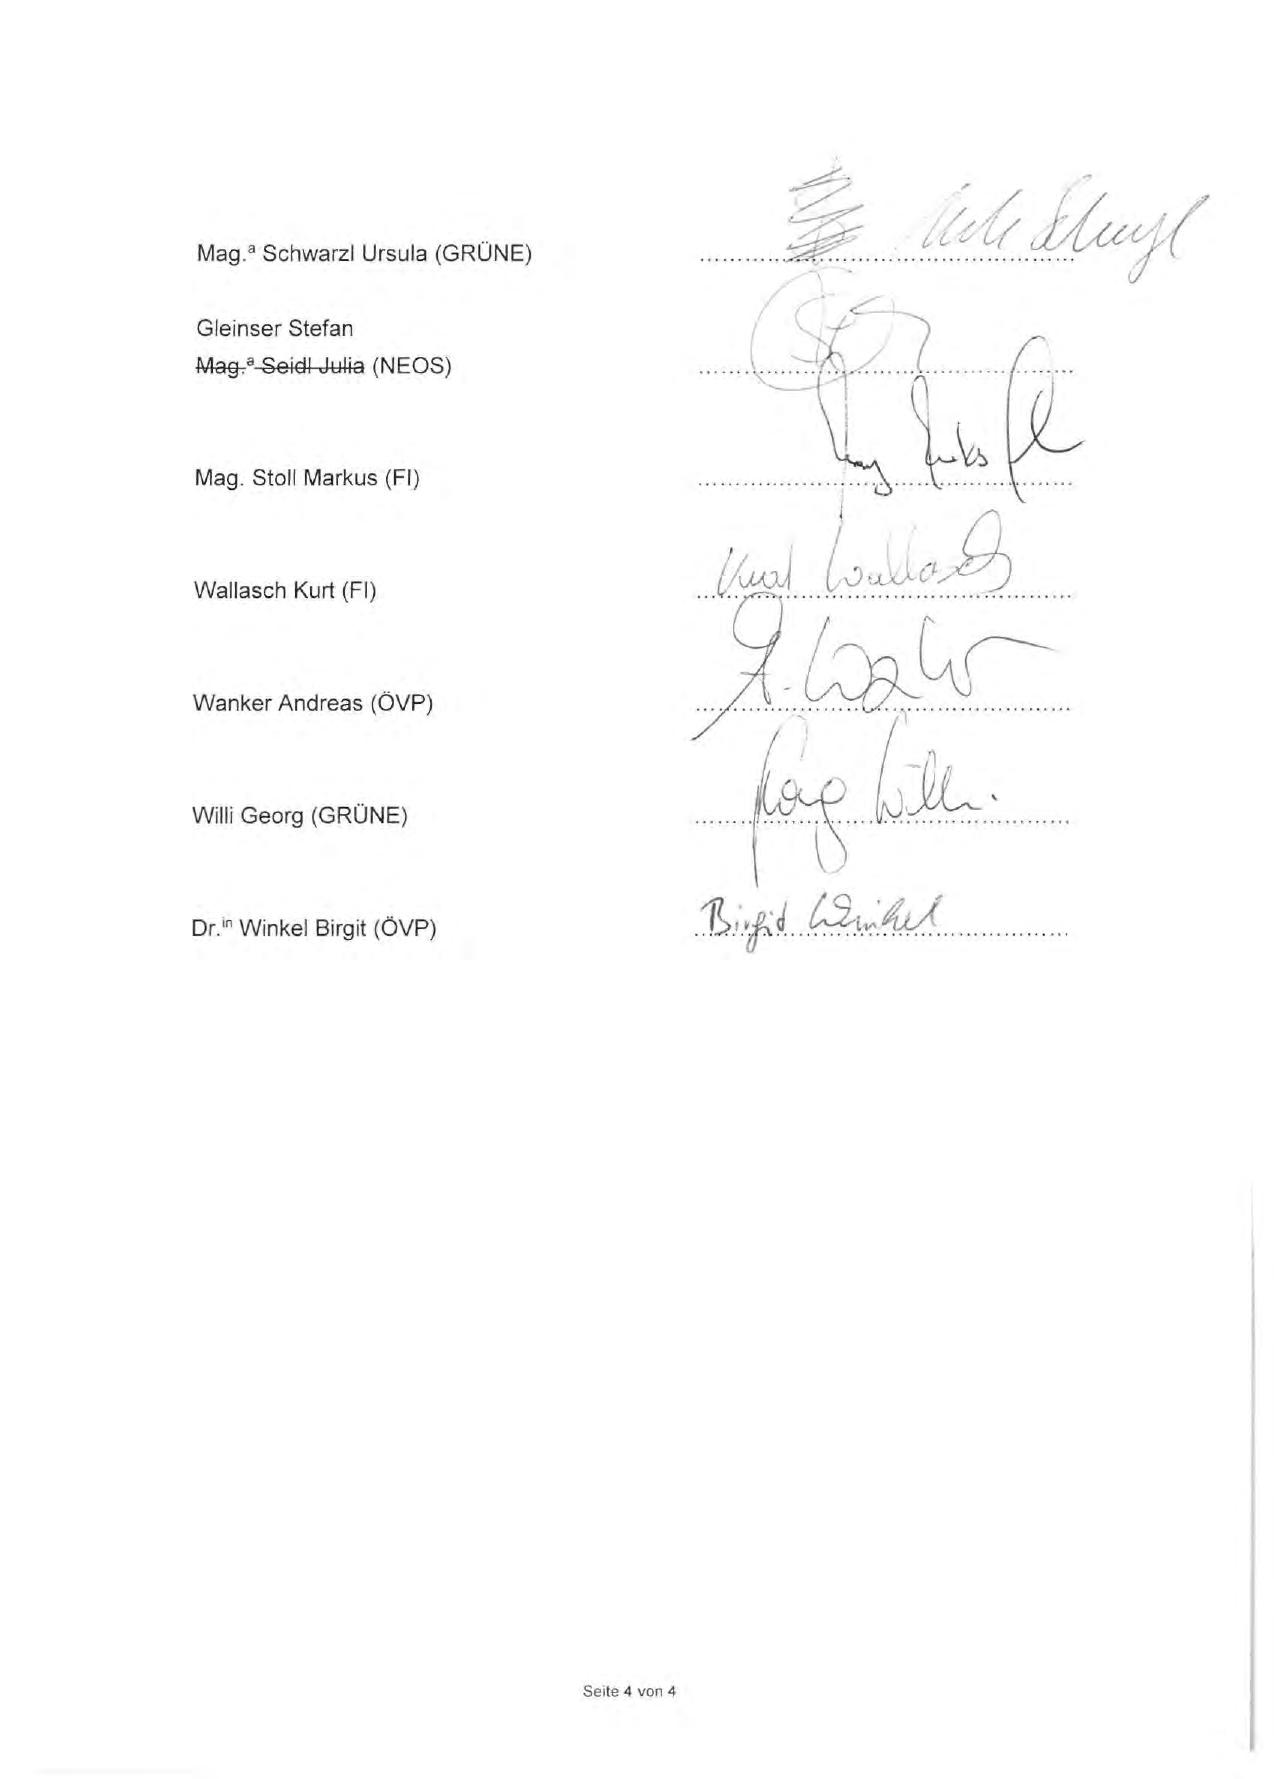 Mag.ª Schwarzl Ursula (GRÜNE)
Gleinser Stefan
Mag.ª Seidl Julia (NEOS)
Mag. Stoll Markus (FI)
Wallasch Kurt (FI)
Kurt Wallasch
Wanker Andreas (ÖVP)
Willi Georg (GRÜNE)
Georg Willi
Dr.in Winkel Birgit (ÖVP)
Birgid Winkel
Seite 4 von 4